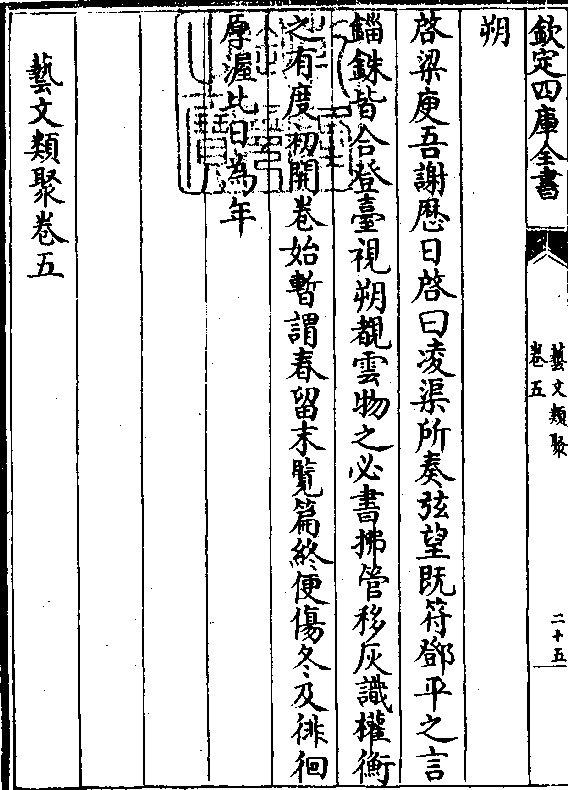 欽定四庫全書
藝文類聚
卷五
二十五
朔
啓梁庾吾謝厯日啓曰凌渠所奏弦望既符鄧平之言
錙銖皆合登臺視朔覩雲物之必書拂管移灰識權衡
之有度初開卷始暫謂春留末覽篇終便傷冬及徘徊
厚渥比日為年
藝文類聚卷五